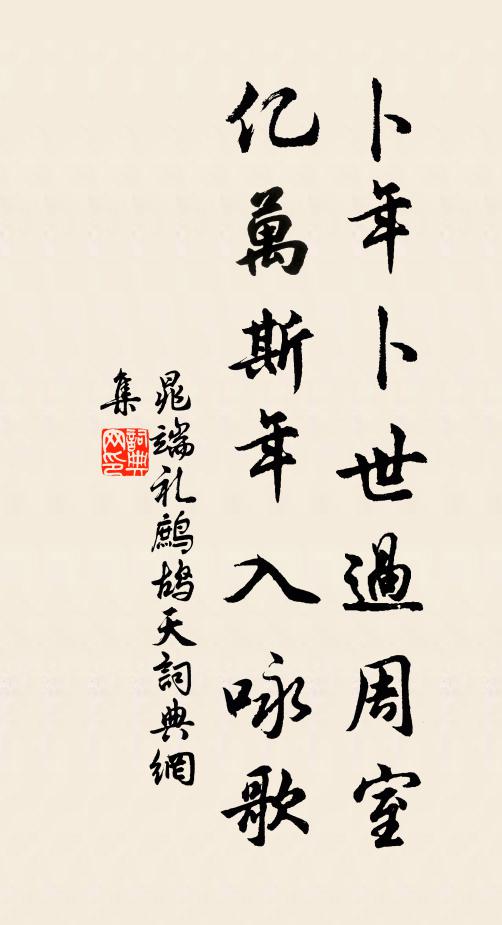 卜年卜世過周室
亿萬斯年入咏歌
晁端礼鷓鴣天詞典網
集
詞典
网印